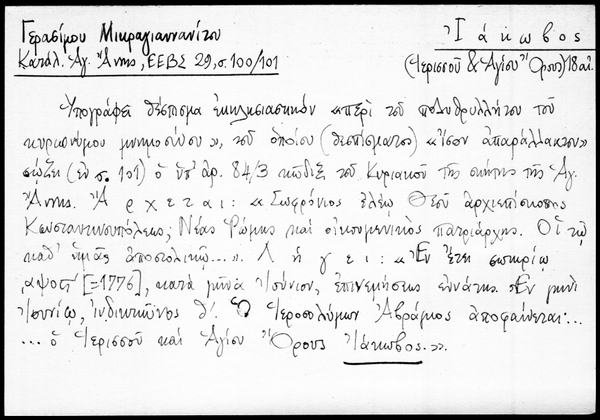 Γερασίμου Μικραγιαννανίτου
Ἰάκωβος
Κατάλ. Ἁγ. Ἄννης, ΕΕΒΣ 29, σ. 100/101
(Ἱερισσοῦ & Ἁγίου Ὄρους) 18 αἰ.
Ὑπογράφει θέσπισμα ἐκκλησιαστικόν «περὶ τοῦ πολυθρυλλήτου τοῦ
κυριωνύμου μνημοσύνου», τοῦ ὁποίου (θεσπίσματος) «ἴσον ἀπαράλλακτον»
σῴζει (ἐν σ. 101) ὁ ὑπ' ἀρ. 84/3 κῶδιξ τοῦ Κυριακοῦ τῆς σκήτης τῆς Ἁγ.
Ἄννης. Ἄρχεται: «Σωφρόνιος ἐλέῳ Θεοῦ ἀρχιεπίσκοπος
Κωνσταντινουπόλεως, Νέας Ῥώμης καὶ οἰκουμενικὸς πατριάρχης. Οἱ τῷ
καθ' ἡμᾶς ἀποστολικῷ...». Λήγει: «Ἐν ἔτει σωτηρίῳ
͵αψοστ´ [=1776], κατὰ μῆνα Ἰούνιον, ἐπινεμήσεως ἐννάτης. Ἐν μηνὶ
Ἰουνίῳ, ἰνδικτιῶνος θ´. Ὁ Ἱεροσολύμων Ἀβράμιος ἀποφαίνεται...
... ὁ Ἱερισσοῦ καὶ Ἁγίου Ὄρους Ἰάκωβος.».